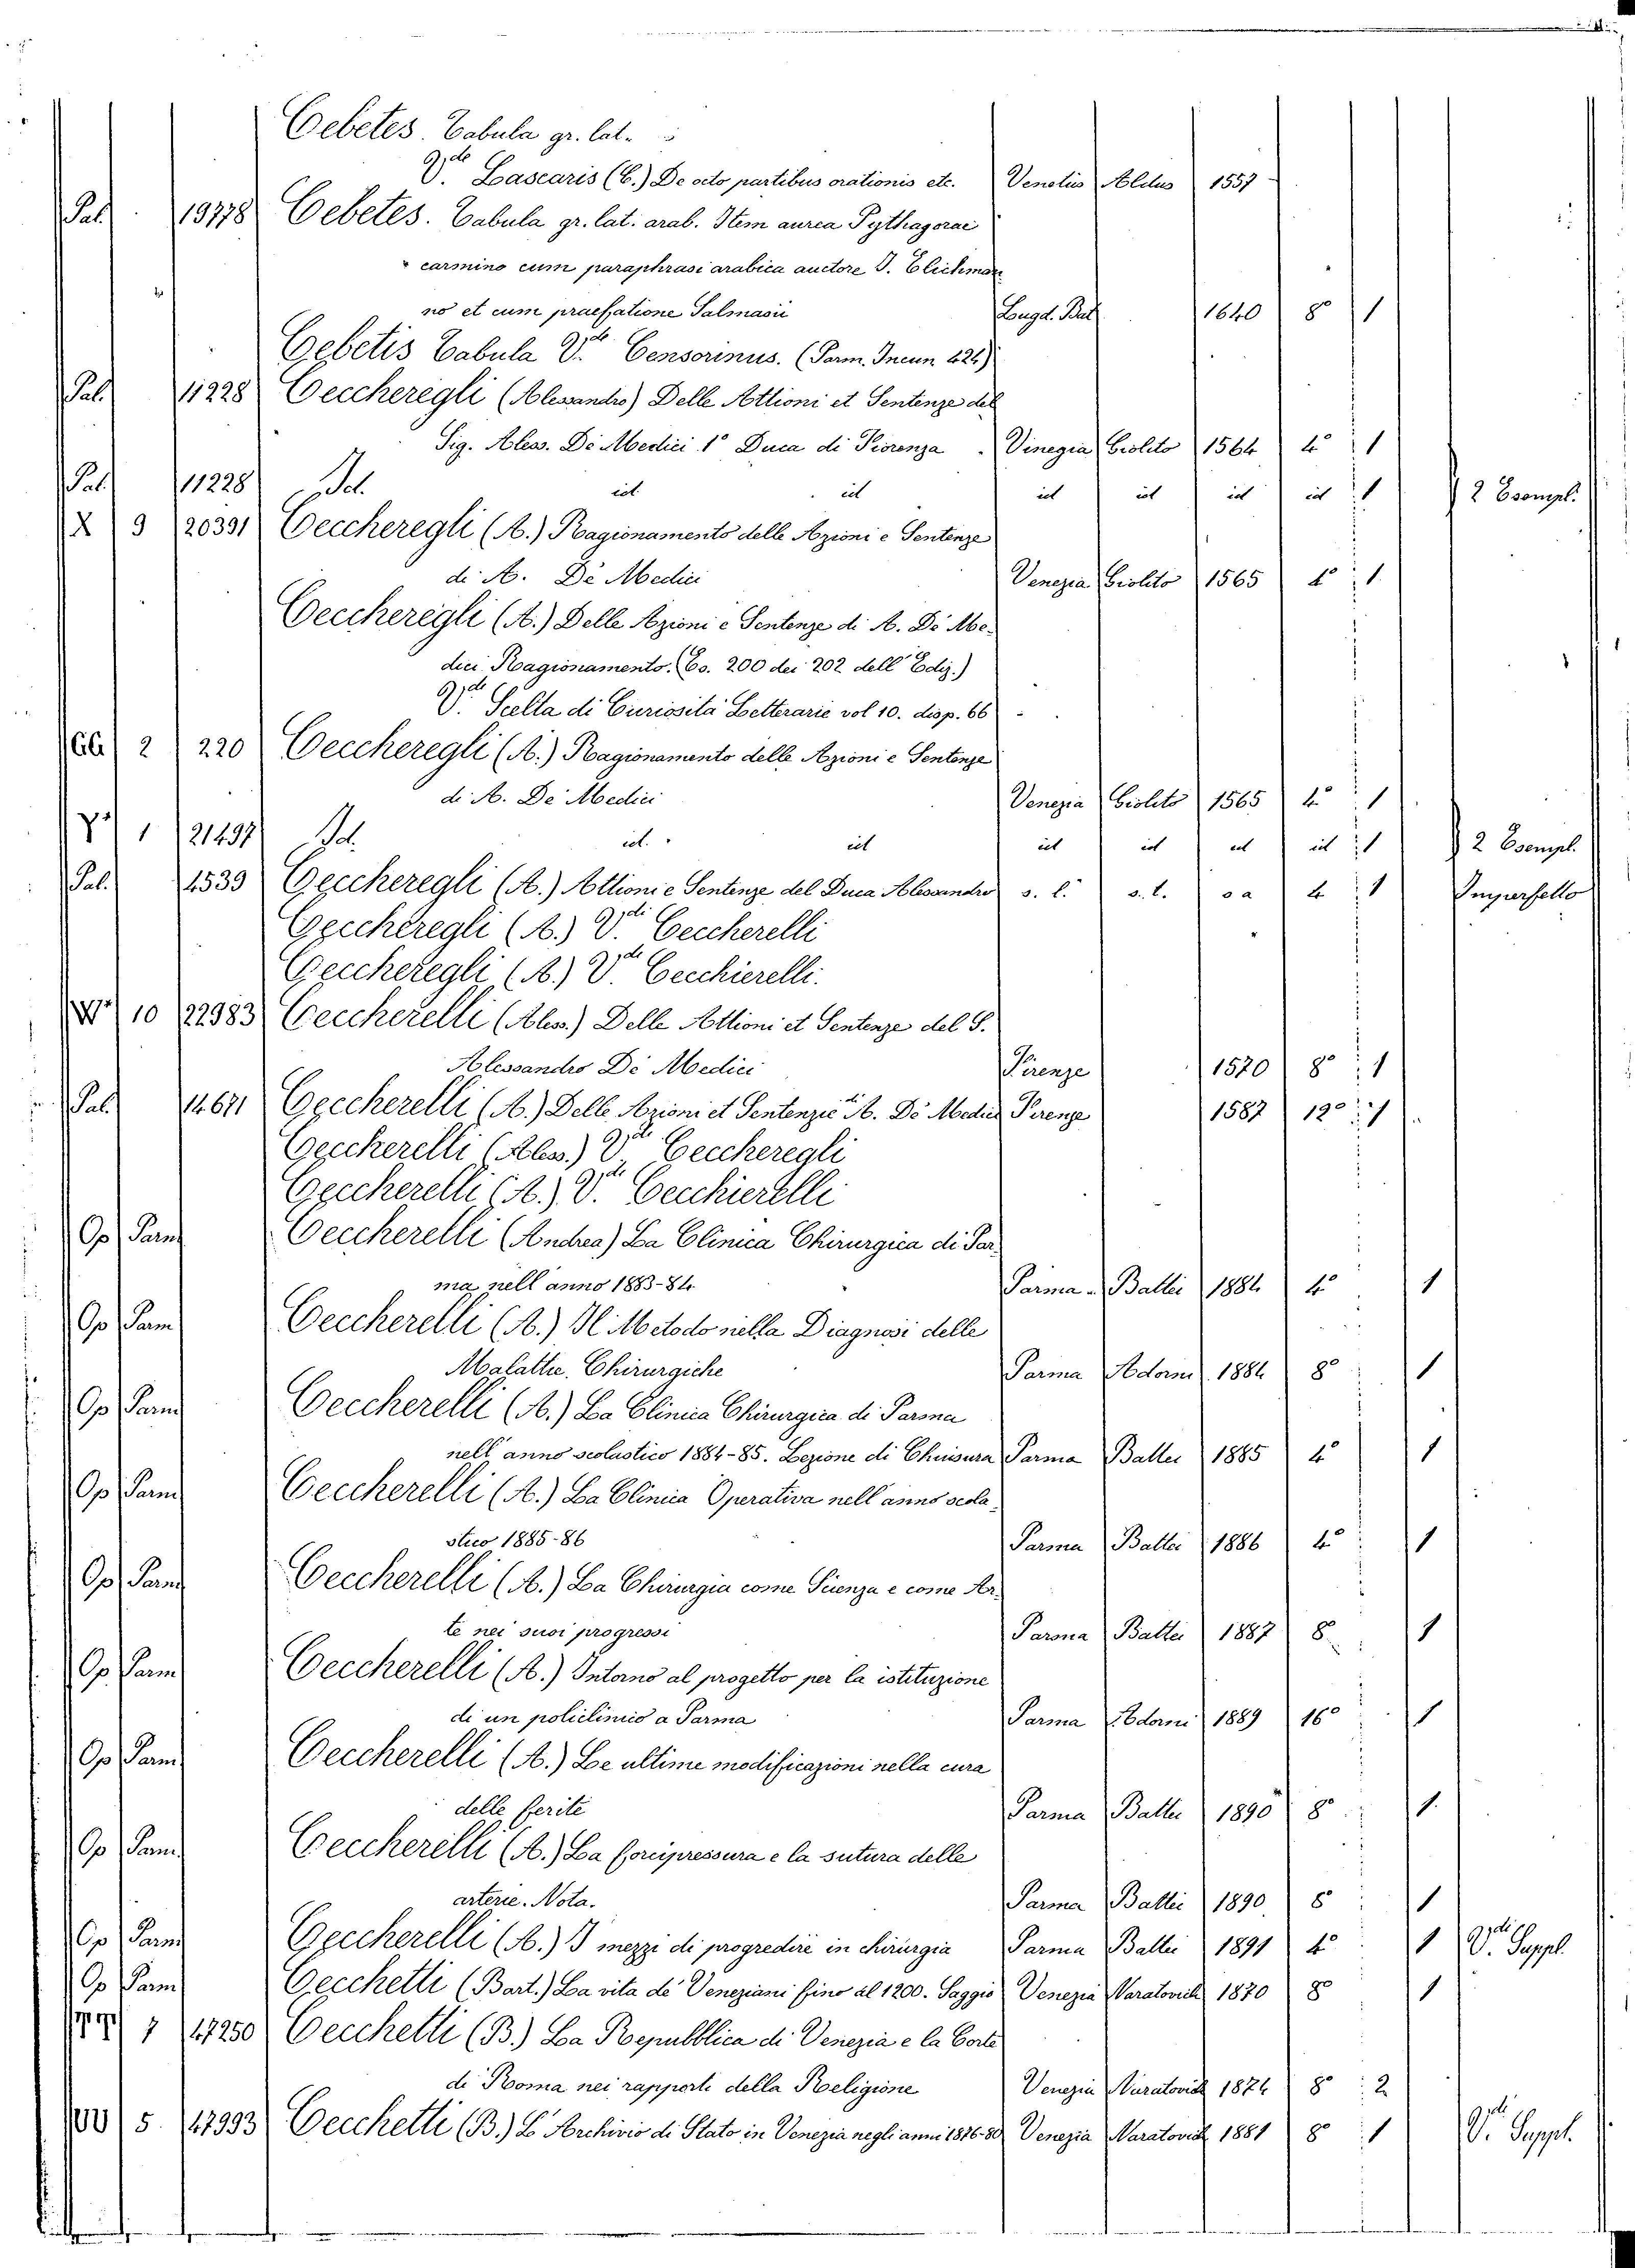 Cebetes. Tabula gr. lat.
V.de Lascaris (C.) De octo partibus orationis etc. Venetiis Aldus 1557
Pal. 19778 Cebetes. Tabula gr. lat. arab. Item aurea Pythagorae
carmine cum paraphrasi arabica auctore J. Elichman
no et cum praefatione Salmasii Lugd. Bat. 1640 8° 1
Cebetis Tabula V.de Censorinus. (Parm. Incun 424)
Pal. 11228 Ceccheregli (Alessandro) Delle Attioni et Sentenze del
Sig. Aless. De Medici 1° Duca di Fiorenza Vinegia Giolito 1564 4° 1
Pal. 11228 Id. id. id id id id id 1 2 Esempl.
X 9 20391 Ceccheregli (A.) Ragionamento delle Azioni e Sentenze
di A. De Medici Venezia Giolito 1565 4° 1
Ceccheregli (A.) Delle Azioni e Sentenze di A. De Me-
dici Ragionamento. (Es. 200 dei 202 dell' Ediz.)
V.de Scelta di Curiosità Letterarie vol 10. disp. 66
GG 2 220 Ceccheregli (A.) Ragionamento delle Azioni e Sentenze
di A. De Medici Venezia Giolito 1565 4° 1
1 21497 Id. id. id id id id id 1 2 Esempl.
Pal. 4539 Ceccheregli (A.) Attioni e Sentenze del Duca Alessandro s. l. s. t. s a 4 1 Imperfetto
Ceccheregli (A.) V.di Ceccherelli
Ceccheregli (A.) V.de Cecchierelli.
10 22983 Ceccherelli (Aless.) Delle Attioni et Sentenze del S.
Alessandro De Medici Firenze 1570 8° 1
Pal. 14671 Ceccherelli (A.) Delle Azioni et Sentenzie di A. De Medici Firenze 1587 12° 1
Ceccherelli (Aless.) V.de Ceccheregli
Ceccherelli (A.) V.de Cecchierelli
Op Parm Ceccherelli (Andrea) La Clinica Chirurgica di Par-
ma nell'anno 1883-84. Parma Battei 1884 4° 1
Op Parm Ceccherelli (A.) Il Metodo nella Diagnosi delle
Malattie Chirurgiche Parma Adorni 1884 8° 1
Op Parm Ceccherelli (A.) La Clinica Chirurgica di Parma
nell'anno scolastico 1884-85. Lezione di Chiusura Parma Battei 1885 4° 1
Op Parm Ceccherelli (A.) La Clinica Operativa nell'anno scola-
stico 1885-86 Parma Battei 1886 4° 1
Op Parm Ceccherelli (A.) La Chirurgia come Scienza e come Ar-
te nei suoi progressi Parma Battei 1887 8 1
Op. Parm Ceccherelli (A.) Intorno al progetto per la istituzione
di un policlinico a Parma Parma Adorni 1889 16° 1
Op Parm Ceccherelli (A.) Le ultime modificazioni nella cura
delle ferite Parma Battei 1890 8° 1
Op Parm Ceccherelli (A.) La forcipressura e la sutura delle
arterie. Nota. Parma Battei 1890 8° 1
Op Parm Ceccherelli (A.) I mezzi di progredire in chirurgia Parma Battei 1891 4° 1 V.di Suppl.
Op Parm Cecchetti (Bart.) La vita de' Veneziani fino al 1200. Saggio Venezia Naratovich 1870 8° 1
7 47250 Cecchetti (B.) La Repubblica di Venezia e la Corte
di Roma nei rapporti della Religione Venezia Naratovich 1874 8° 2
5. 47993 Cecchetti (B.) L'Archivio di Stato in Venezia negli anni 1876-80 Venezia Naratovich 1881 8° 1 V.di Suppl.